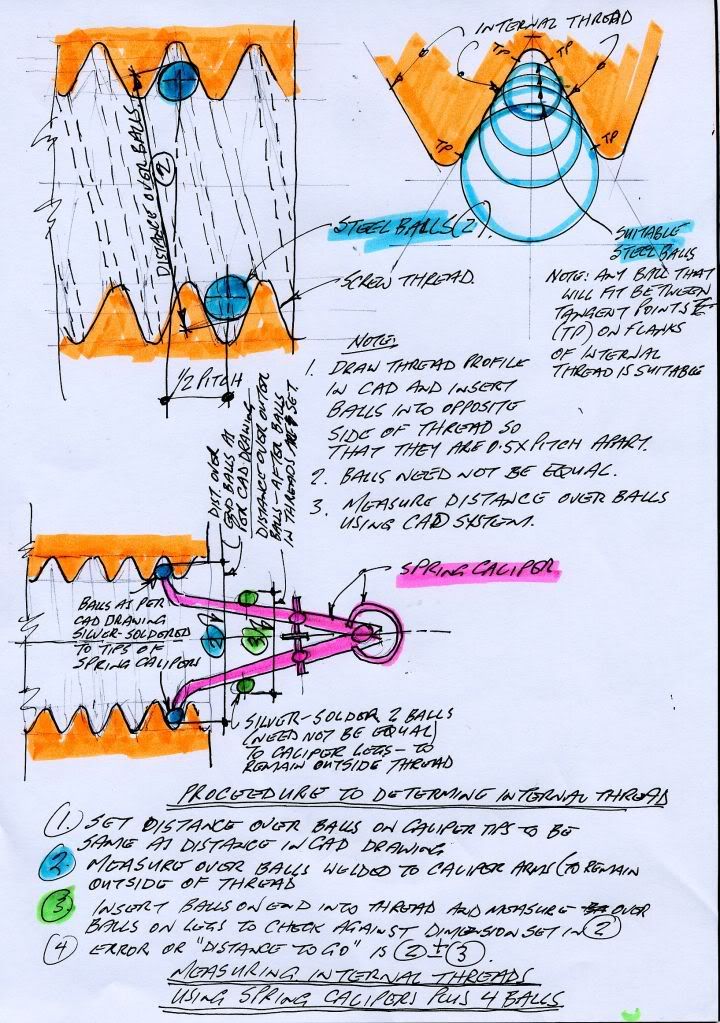 INTERNAL THREAD
TP
TP
TP
TP
DISTANCE OVER BALLS
2
STEEL BALLS (2)
SCREW THREAD.
1/2 PITCH
SUITABLE
STEEL BALLS
NOTE: ANY BALL THAT
WILL FIT BETWEEN
TANGENT POINTS
(TP) ON FLANKS
OF INTERNAL
THREAD IS SUITABLE
NOTE:
1. DRAW THREAD PROFILE
IN CAD AND INSERT
BALLS INTO OPPOSITE
SIDE OF THREAD SO
THAT THEY ARE 0.5X PITCH APART.
2. BALLS NEED NOT BE EQUAL.
3. MEASURE DISTANCE OVER BALLS
USING CAD SYSTEM.
DIST OVER
END BALLS AS
PER CAD DRAWING
DISTANCE OVER OUTER
BALLS - AFTER BALLS
IN THREADS ARE SET.
SPRING CALIPER
BALLS AS PER
CAD DRAWING
SILVER-SOLDERED
TO TIPS OF
SPRING CALIPERS
2
3
SILVER-SOLDER 2 BALLS
(NEED NOT BE EQUAL)
TO CALIPER LEGS - TO
REMAIN OUTSIDE THREAD
PROCEEDURE TO DETERMINE INTERNAL THREAD
1. SET DISTANCE OVER BALLS ON CALIPER TIPS TO BE
SAME AS DISTANCE IN CAD DRAWING
2. MEASURE OVER BALLS WELDED TO CALIPER ARMS (TO REMAIN
OUTSIDE OF THREAD
3. INSERT BALLS ON END INTO THREAD AND MEASURE OVER
BALLS ON LEGS TO CHECK AGAINST DIMENSION SET IN 2
4 ERROR OR "DISTANCE TO GO" IS 2 ± 3.
MEASURING INTERNAL THREADS
USING SPRING CALIPERS PLUS 4 BALLS